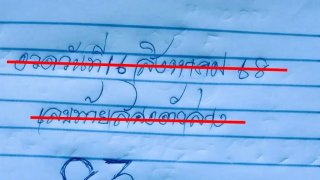 งวดวันที่ 16 สิงหาคม 68
เลขท้ายสองตัวล่าง
93